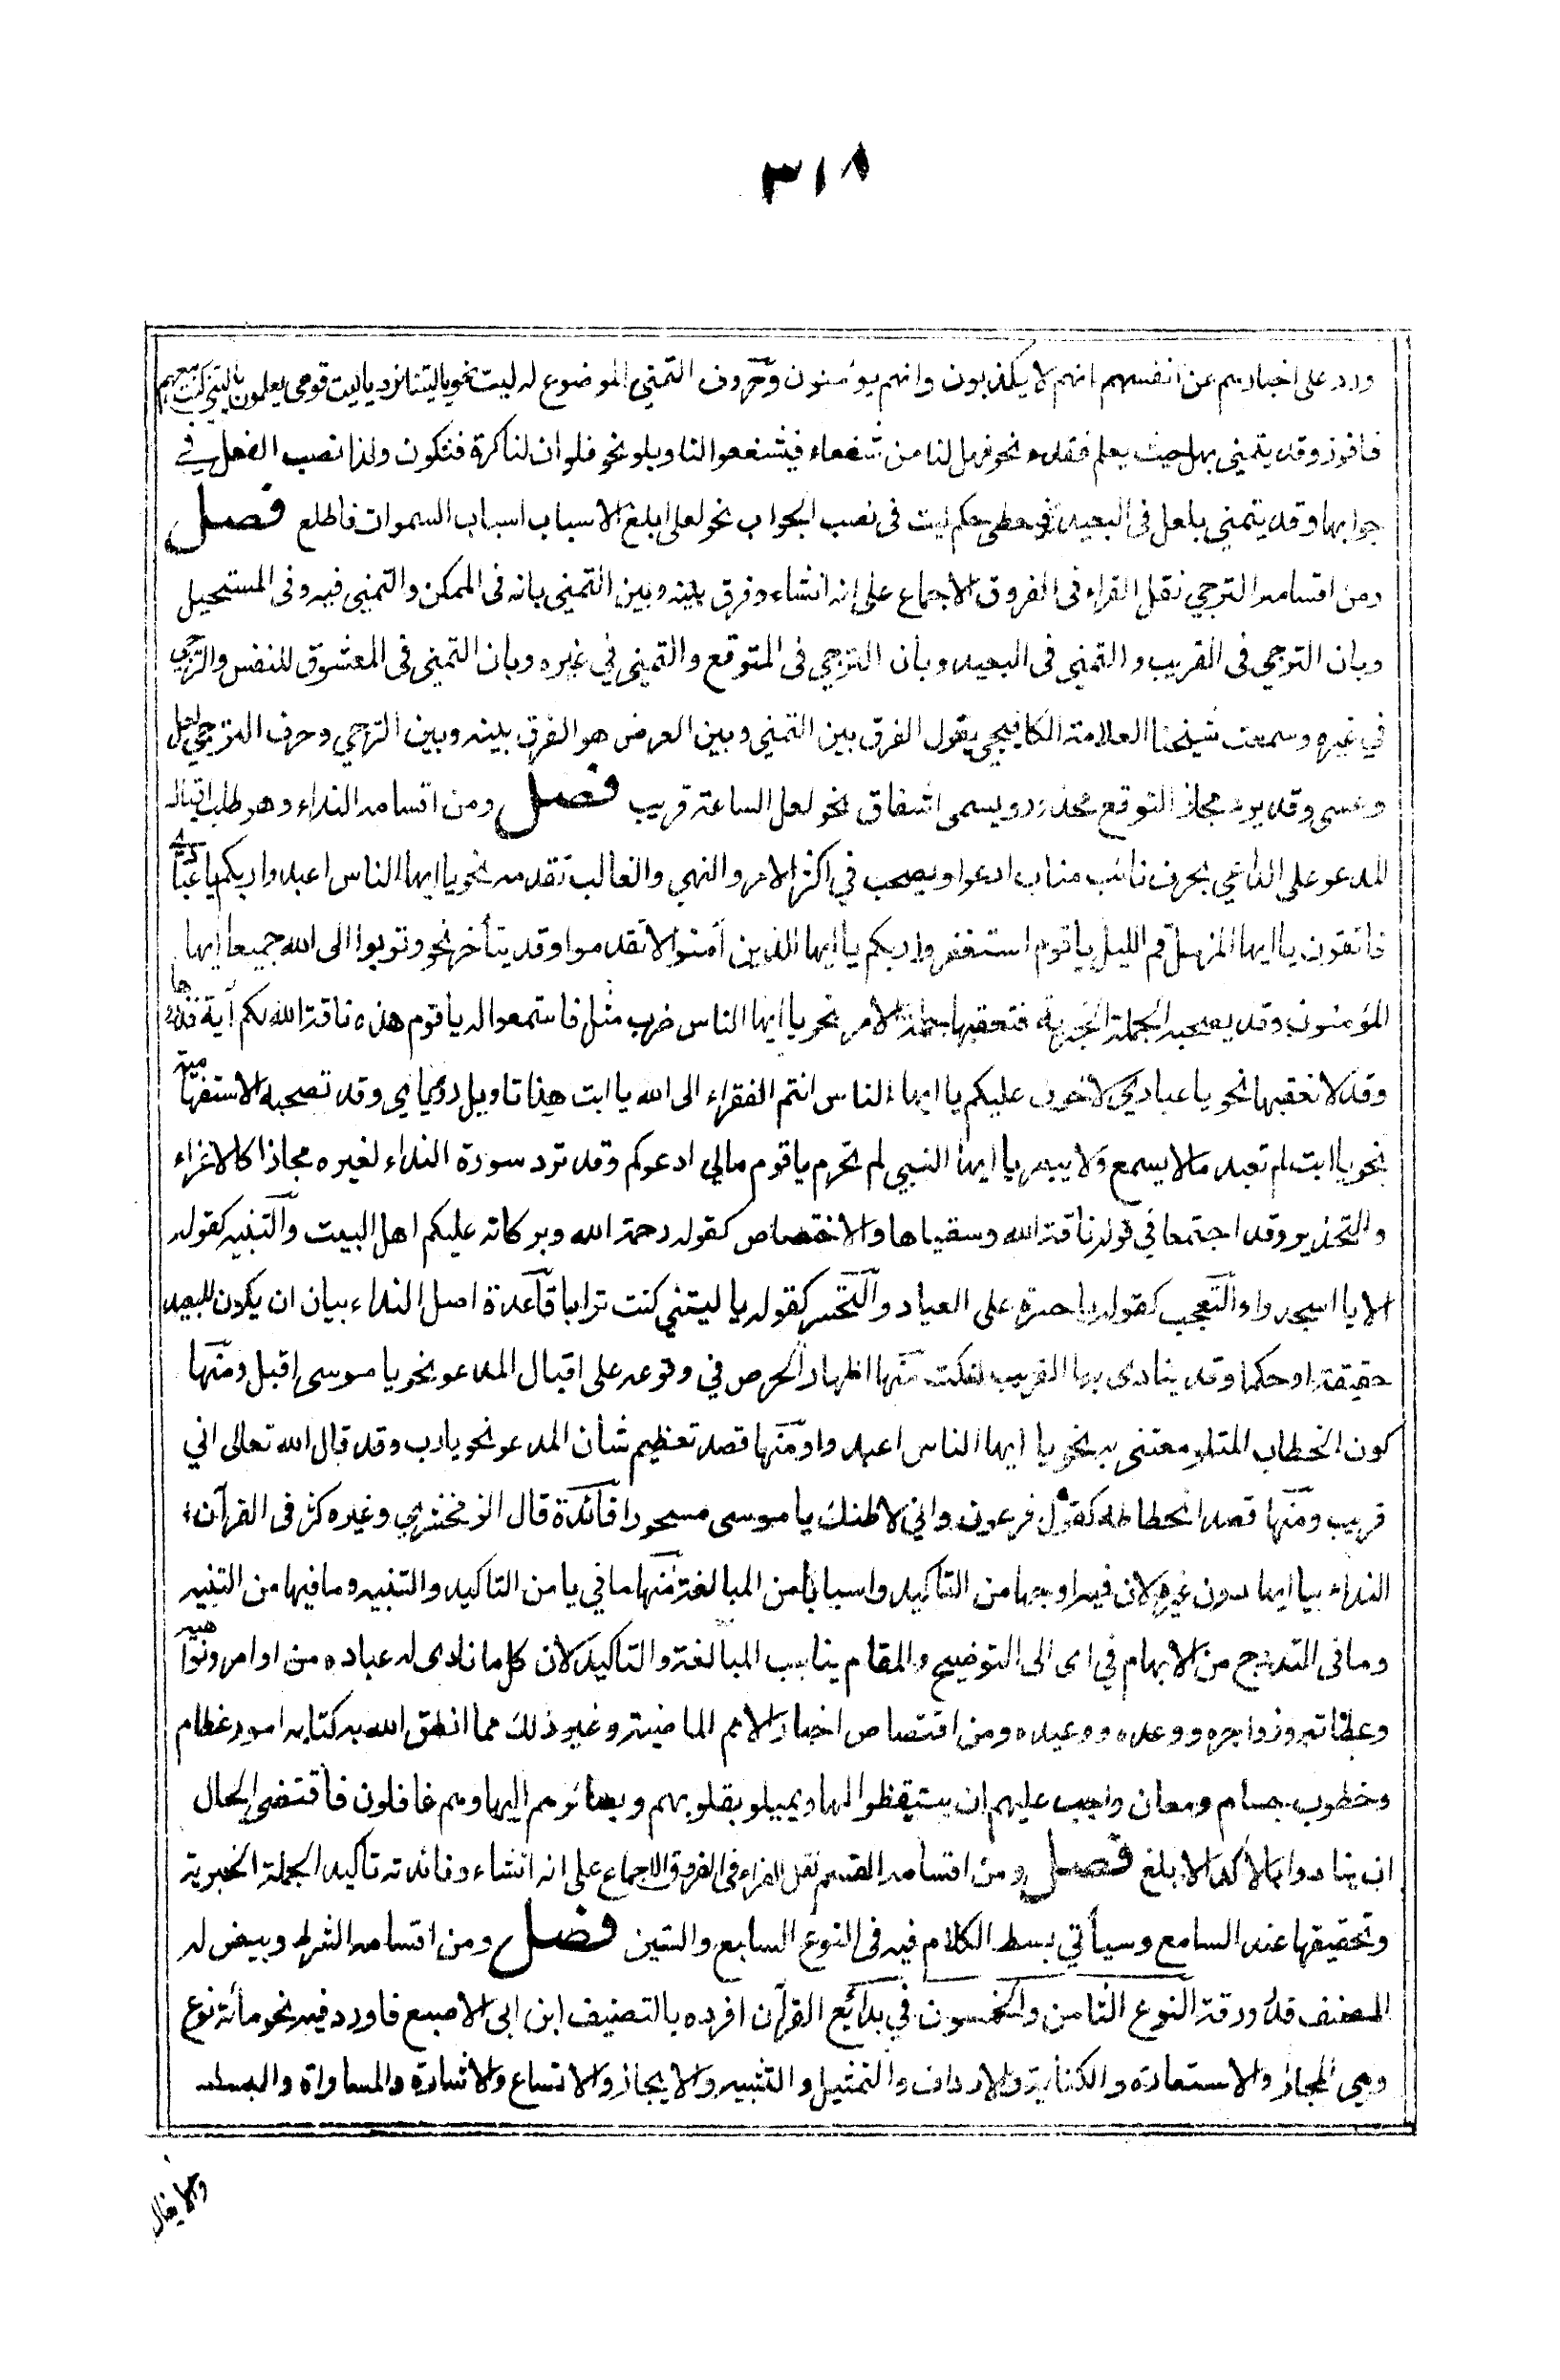 ٣١٨
ورد على اخبارهم عن انفسهم انهم لا يكذبون وانهم يؤمنون وحرف التمني الموضوع له ليت نحو يا ليتنا نرد يا ليت قومي يعلمون يا ليتني كنت معهم
فافوز وقد يتمنى بهل حيث يعلم فقده نحو فهل لنا من شفعاء فيشفعوا لنا وبلو نحو فلو ان لنا كرة فنكون ولذا نصب الفعل في
جوابها وقد يتمنى بلعل فى البعيد فيعطى حكم ليت فى نصب الجواب نحو لعلى ابلغ الاسباب اسباب السموات فاطلع فصل
ومن اقسامه الترجي نقل القراء فى الفروق الاجماع على انه انشاء وفرق بينه وبين التمني بانه فى الممكن والتمني فيه وفى المستحيل
وبان الترجي فى القريب والتمني فى البعيد وبان الترجي فى المتوقع والتمني في غيره وبان التمني فى المعشوق للنفس والترجي
في غيره وسمعت شيخنا العلامة الكافيجي يقول الفرق بين التمني وبين العرض هو الفرق بينه وبين الترجي وحرف الترجي لعل
وعسى وقد يرد مجازا لتوقع محذور ويسمى اشفاق نحو لعل الساعة قريب فصل ومن اقسامه النداء وهو طلب اقبال
المدعو على الداعي بحرف نائب مناب ادعوا ويصحب في اكثر الامر والنهي والغالب تقدمه نحو يا ايها الناس اعبدوا ربكم يا عباد
فاتقون يا ايها المزمل قم الليل يا قوم استغفروا ربكم يا ايها الذين آمنوا لا تقدموا وقد يتأخر نحو وتوبوا الى الله جميعا ايها
المؤمنون وقد يصحب الجملة الخبرية فتعقبها جملة الامر نحو يا ايها الناس ضرب مثل فاستمعوا له يا قوم هذه ناقة الله لكم آية فذروها
وقد لا تعقبها نحو يا عبادي لا خوف عليكم يا ايها الناس انتم الفقراء الى الله يا ابت هذا تاويل رؤياي وقد تصحبه الاستفهامية
نحو يا ابت لم تعبد ما لا يسمع ولا يبصر يا ايها النبي لم تحرم يا قوم مالي ادعوكم وقد ترد سورة النداء لغيره مجازا كالاغراء
والتحذير وقد اجتمعا في قوله ناقة الله وسقياها والاختصاص كقوله رحمة الله وبركاته عليكم اهل البيت والتنبيه كقوله
الا يا اسجدوا والتعجب كقوله يا حسرة على العباد والتحسر كقوله يا ليتني كنت ترابا قاعدة اصل النداء بيان ان يكون للبعيد
حقيقة او حكما وقد ينادى بها القريب لنكت منها اظهار الحرص في وقوعه على اقبال المدعو نحو يا موسى اقبل ومنها
كون الخطاب المتلو معتنى به نحو يا ايها الناس اعبدوا ومنها قصد تعظيم شأن المدعو نحو يا رب وقد قال الله تعالى اني
قريب ومنها قصد انحطاطه كقول فرعون واني لاظنك يا موسى مسحورا فائدة قال الزمخشري وغيره كثر فى القرآن
النداء بيا ايها دون غيره لان فيه اوجها من التأكيد واسبابا من المبالغة منها ما في يا من التاكيد والتنبيه وما فيها من التنبيه
وما فى التدرج من الابهام في اى الى التوضيح والمقام يناسب المبالغة والتاكيد لان كل ما نادى له عباده من اوامر ونواهيه
وعظاته وزواجره ووعده ووعيده ومن اقتصاص اخبار الامم الماضية وغير ذلك مما انطق الله به كتابه امور عظام
وخطوب جسام ومعان واجب عليهم ان يتيقظوا لها ويميلو بقلوبهم وبصائرهم اليها وهم غافلون فأقتضى الحال
ان ينادوا بالآكد الابلغ فصل ومن اقسامه القسم نقل القراء فى الفروق الاجماع على انه انشاء وفائدته تاكيد الجملة الخبرية
وتحقيقها عند السامع وسيأتي بسط الكلام فيه فى النوع السابع والستين فصل ومن اقسامه الشرط وبيض له
المصنف قدر ورقة النوع الثامن والخمسون في بدائع القرآن افرده بالتصنيف ابن ابى الاصبع فاورد فيه نحو مائة نوع
وهي المجاز والاستعارة والكناية والارداف والتمثيل والتشبيه والايجاز والاتساع والاشارة والمساواة والبسط
والايغال